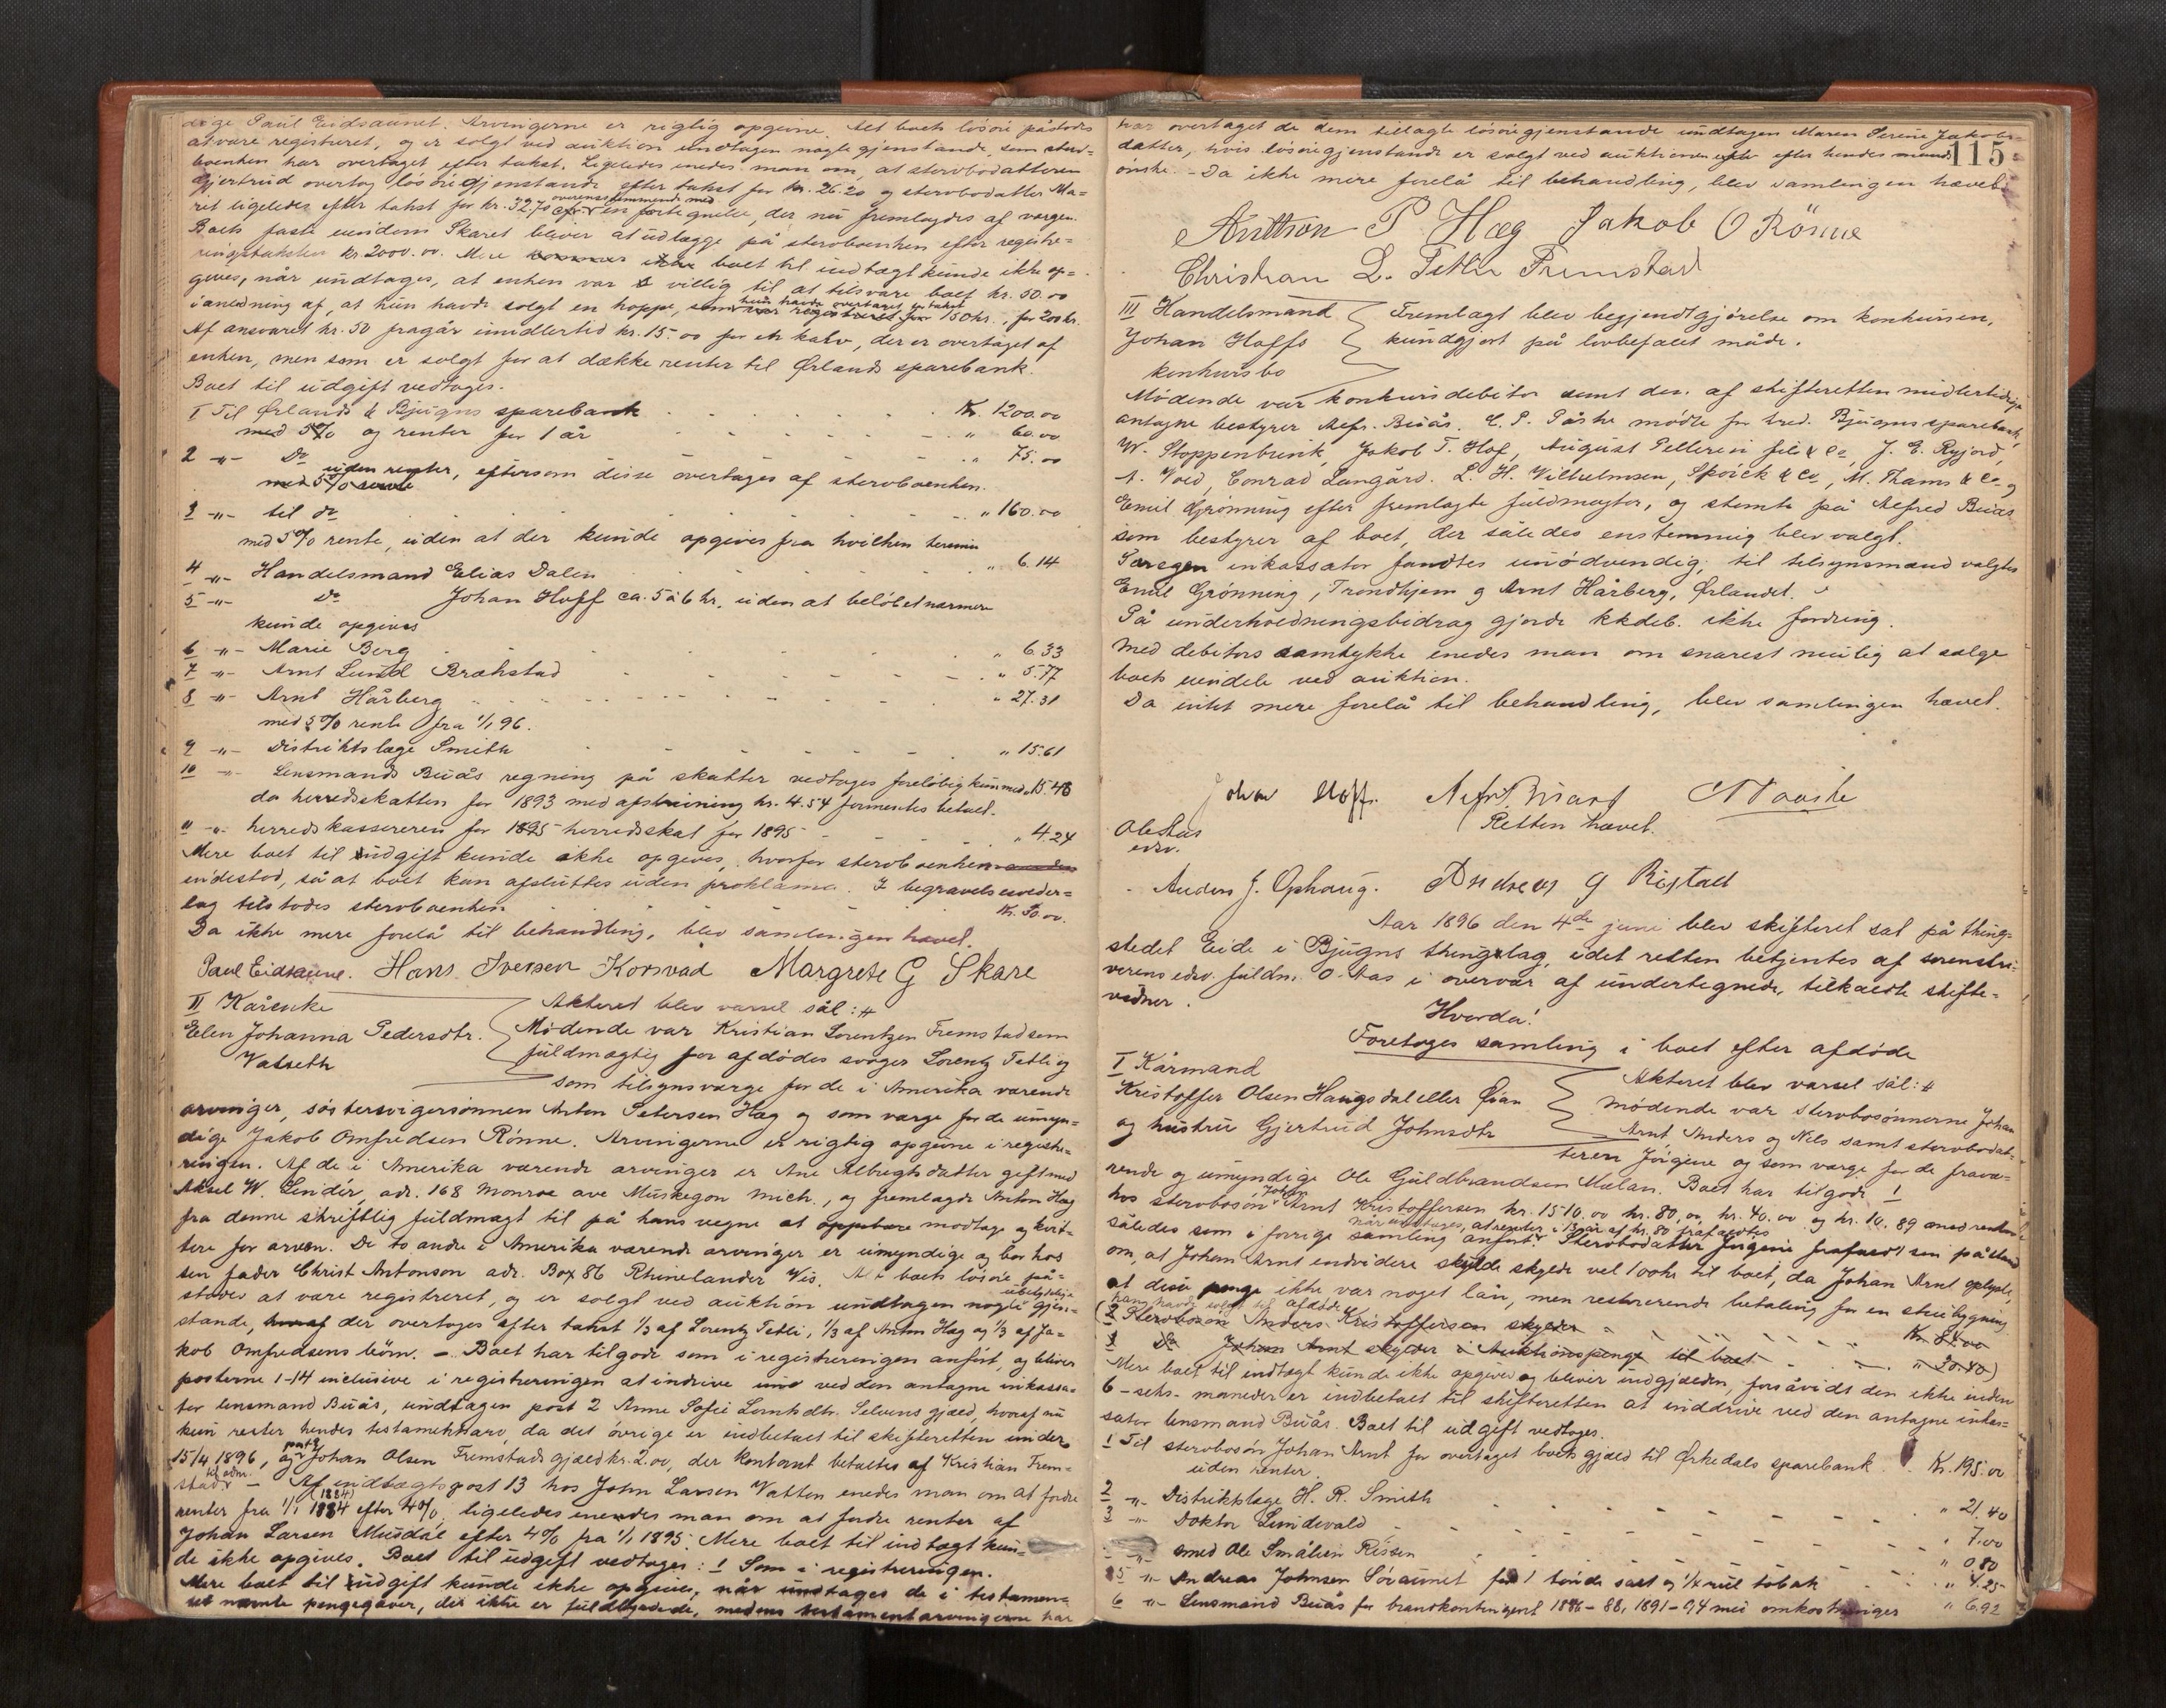 dige Paul Eidsaunet. Arvingerne er rigtig opgivne. Alt boets løsøre påstodes
at være registreret, og er solgt ved auktion undtagen nogle gjenstande, som sterv-
boenken har overtaget efter takst. Ligeledes enedes man om, at stervbodatteren
Gjertrud overtog løsøregjenstande efter takst for kr. 26.20 og stervbodatter Ma-
ret ligeledes efter takst for kr. 32.70 overensstemmende med en fortegnelse, der nu fremlagdes af værgen.
Boets faste eiendom Skaret bliver at udlægge på stervboenken efter registre-
ringstaksten kr 2000.00. Mere boet til indtægt kunde ikke op-
gives, når undtages, at enken var villig til at tilsvare boet kr. 50.00
i anledning af, at hun havde solgt en hoppe, som hun havde overtaget en takst 150 kr., for 200 kr.
Af ansvaret kr. 50 fragår imidlertid kr. 15.00 for en kalv, der er overtaget af
enken, men som er solgt for at dække renter til Ørlands sparebank.
Boet til udgift vedtoges.
1 Til Ørlands & Bjugns sparebank Kr. 1200.00
med 5% og renter for 1 år " 60.00
2 -"- Do " 75.00
uden renter, eftersom disse overtages af stervboenken.
3 -"- til do " 160.00
med 5% rente, uden at der kunde opgives fra hvilken termin
4 -"- Handelsmand Elias Dalen " 6.14
5 -"- Do Johan Hoff ca. 5 à 6 kr., uden at beløbet nærmere
kunde opgives
6 -"- Marie Berg " 6.33
7 -"- Arnt Lund Brækstad " 5.77
8 -"- Arnt Hårberg " 27.31
med 5% rente fra 1/1 96.
9 -"- Distriktslæge Smith " 15.61
10 -"- Lensmand Buås regning på skatter vedtages foreløbig kun med " 15.48
da herredsskatten for 1893 med afskrivning kr. 4.54 formentes betalt.
11 -"- herredskassereren for 1895 herredsskat for 1895 " 4.24
Mere boet til udgift kunde ikke opgives, hvorfor stervboenken
indestod, så at boet kan afsluttes uden proklama. I begravelsesveder-
lag tilstodes stervboenken Kr. 50.00.
Da ikke mere forelå til behandling, blev samlingen hævet.
Paul Eidsaune. Hans Iversen Korsvad Margrete G Skare
II Kårenke
Elen Johanna Pedersdtr.
Vatseth
Akteret blev varsel sål: #
Mødende var Kristian Lorentzen Fremstad som
fuldmægtig for afdødes svoger Lorentz Tetli og
som tilsynsværge for de i Amerika værende
arvinger, søstersvigersønnen Anton Petersen Hæg og som værge for de umyn-
dige Jakob Omfredsen Rønne. Arvingerne er rigtig opgivne i registre-
ringen. Af de i Amerika værende arvinger er Ane Albregtsdatter gift med
Aksel W. Lindér, adr. 168 Monroe ave Muskegon Mich., og fremlagde Anton Hæg
fra denne skriftlig fuldmagt til på hans vegne at oppebære modtage og kvit-
tere for arven. De to andre i Amerika værende arvinger er umyndige og bor hos
sin fader Christ Antonson adr. Box 86 Rhinelander Wis. Alt boets løsøre på-
stodes at være registreret, og er solgt ved auktion undtagen nogle ubetydelige gjen-
stande, hvoraf der overtoges efter takst 1/3 af Lorentz Tetli, 1/3 af Anton Hæg og 1/3 af Ja-
kob Omfredsens børn. – Boet har tilgode som i registreringen anført, og bliver
posterne 1-14 inclusive i registreringen at indrive ved den antagne inkassa-
tor lensmand Buås, undtagen post 2 Anne Sofie Lornhdtr. Selvens gjæld, hvoraf nu
kun rester hendes testamentarv, da det øvrige er indbetalt til skifteretten under
15/4 1896, og post 9 Johan Olsen Fremstads gjæld kr. 2.00, der kontant betaltes af Kristian Frem-
stad til adm. – Af indtægtspost 13 hos John Larsen Vatten enedes man om at fordre
renter fra 1/1 1884 (1884) efter 4%, ligeledes enedes man om at fordre renter af
Johan Larsen Musdal efter 4% fra 1/1 1895. Mere boet til indtægt kun-
de ikke opgives. Boet til udgift vedtoges: 1 Som i registreringen.
Mere boet til udgift kunde ikke opgives, når undtages de i testamen-
tet nævnte pengegaver, der ikke er fuldbyrdede, medens testamentarvingerne har
115
har overtaget de dem tillagte løsøregjenstande undtagen Maren Serine Jakobs-
datter, hvis løsøregjenstande er solgt ved auktionen efter hendes mands
ønske. – Da ikke mere forelå til behandling, blev samlingen hævet.
Anthon P Hæg Jakob O Rönne
Christian L. Tetlie Fremstad
III Handelsmand
Johan Hoffs
konkursbo
Fremlagt blev bekjendtgjørelse om konkursen,
kundgjort på lovbefalet måde.
Mødende var konkursdebitor samt den af skifteretten midlertidig
antagne bestyrer Alfr. Buås. C. P. Påske mødte for kred. Bjugns sparebank,
W. Stoppenbrink, Jakob T. Hof, August Pellerin fils & Co, J. E. Ryjord,
A. Void, Conrad Langård. L. H. Wilhelmsen, M. Thams & Co og
Emil Grønning efter fremlagte fuldmagter, og stemte på Alfred Buås
som bestyrer af boet, der således enstemmig blev valgt.
Særegen inkassator fandtes unødvendig; til tilsynsmænd valgtes
Emil Grønning, Trondhjem og Arnt Hårberg, Ørlandet.
På underholdningsbidrag gjorde kkdeb. ikke fordring.
Med debitors samtykke enedes man om snarest mulig at sælge
boets eiendele ved auktion.
Da intet mere forelå til behandling, blev samlingen hævet.
Johan Hoff. Alfr. Buaas C P Paaske
Retten hævet.
Ole Aas
edsv.
Anders J. Ophaug. Andreas G Ristad
Aar 1896 den 4de juni blev skifteret sat på thing-
stedet Eide i Bjugns thinglag, idet retten betjentes af sorenskri-
verens edsv. fuldm. O. Aas i overvær af undertegnede, tilkaldte skifte-
vidner.
Hvorda!
Foretoges samling i boet efter afdøde
I Kårmand
Kristoffer Olsen Haugsdal eller Øian
og hustru Gjertrud Johnsdtr
Akteret blev varsel sål: #
mødende var stervbosønnerne Johan
Arnt, Anders og Nils samt stervbodat-
teren Jørgine og som værge for de fravæ-
rende og umyndige Ole Guldbrandsen Mælan. Boet har tilgode 1
hos stervbosøn Johan Arnt Kristoffersen kr. 1510.00 kr. 80.00 kr. 40.00 og kr. 10.89 med renter
således som i forrige samling anført, når undtages, at renter i 13 år af kr. 80 frafaldtes. Stervbodatter Jørgine frafaldt sin påstand
om, at Johan Arnt endvidere skylde vel 100 kr til boet, da Johan Arnt oplyste,
at disse penge ikke var noget lån, men resterende betaling for en stuebygning
han havde solgt til afdøde
(2 Stervbosøn Anders Kristoffersen skylder Kr. 84.00
3 do Johan Arnt skylder i Auktionspenge til boet " 30.40)
Mere boet til indtægt kunde ikke opgives og bliver indgjælden, forsåvidt den ikke inden
6 -seks- måneder er indbetalt til skifteretten at inddrive ved den antagne inkas-
sator lensmand Buås. Boet til udgift vedtoges.
1 Til stervbosøn Johan Arnt for overtaget boets gjæld til Ørkedals sparebank Kr. 195.00
uden renter.
2 -"- Distriktslæge H. R. Smith " 21.40
3 -"- Doktor Lindevald " 7.00
-"- smed Ole Smålien Rissen " 0 80
5 -"- Andreas Johnsen Söraunet for 1 tønde salt og 1/4 rul tobak " 4.25
6 -"- Lensmand Buås for brandkontingent 1886-88, 1891-94 med omkostninger " 6.92